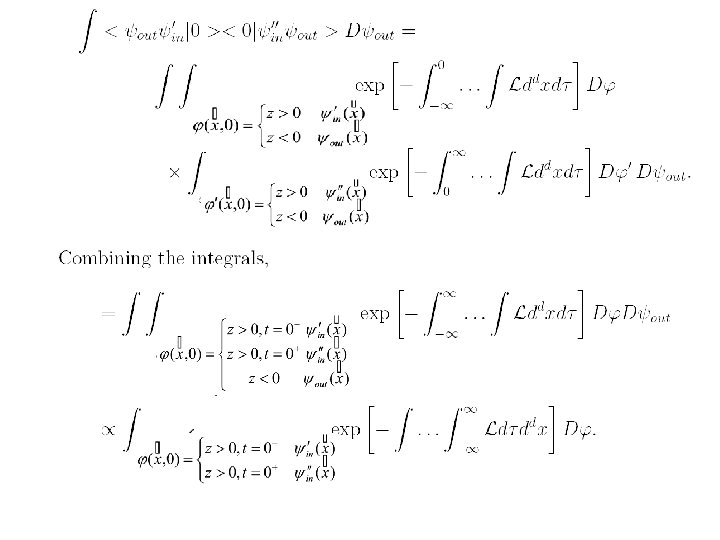 ∫ < ψ_out ψ′_in|0 >< 0|ψ″_in ψ_out > Dψ_out =
∫ ∫_{φ(x,0) = { z > 0 ψ′_in(x) ; z < 0 ψ_out(x)} exp [ − ∫_{−∞}^{0} … ∫ ℒd^d xdτ ] Dφ
× ∫_{φ′(x,0) = { z > 0 ψ″_in(x) ; z < 0 ψ_out(x)} exp [ − ∫_{0}^{∞} … ∫ ℒd^d xdτ ] Dφ′ Dψ_out.
Combining the integrals,
= ∫ ∫_{φ(x,0) = { z > 0, t = 0⁻ ψ′_in(x) ; z > 0, t = 0⁺ ψ″_in(x) ; z < 0 ψ_out(x)} exp [ − ∫_{−∞}^{∞} … ∫ ℒd^d xdτ ] DφDψ_out
∝ ∫_{φ(x,0) = { z > 0, t = 0⁻ ψ′_in(x) ; z > 0, t = 0⁺ ψ″_in(x)} exp [ − ∫ … ∫_{∞}^{∞} ℒdτd^d x ] Dφ.